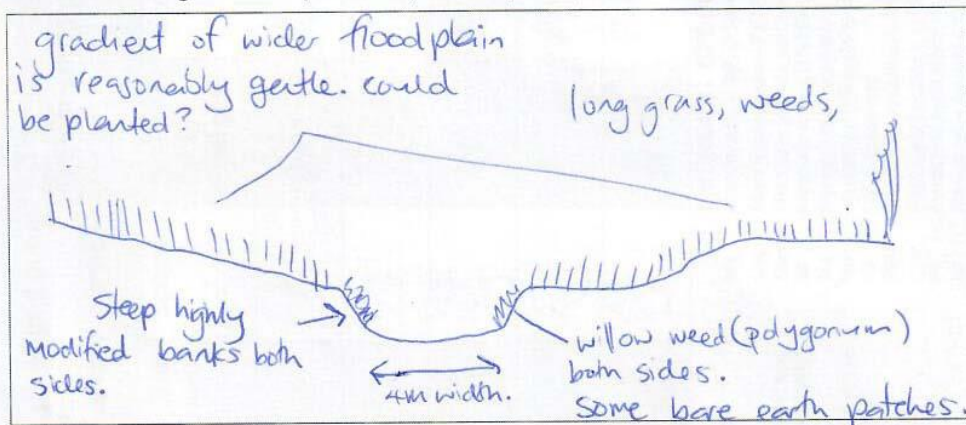 gradient of wider floodplain
is reasonably gentle. could
be planted?
long grass, weeds,
Steep highly
modified banks both
sides.
4m width.
willow weed (polygonum)
both sides.
some bare earth patches.